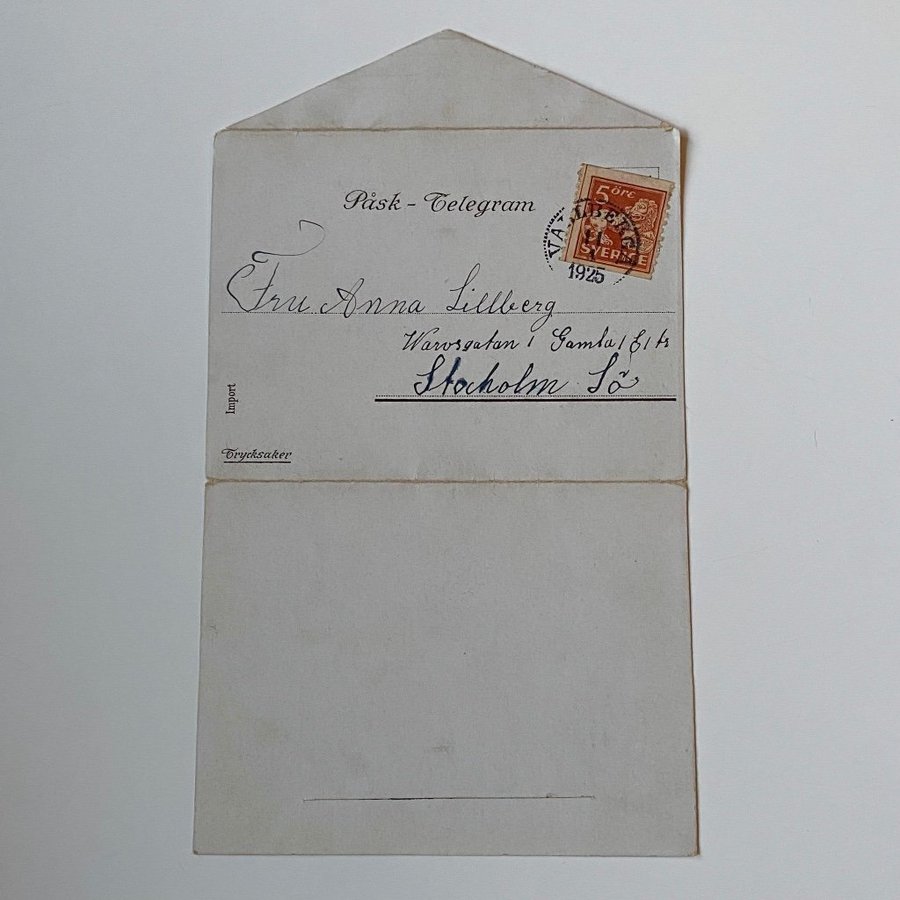 Påsk-Telegram
5 ÖRE
SVERIGE
11
1925
Fru Anna Lillberg
Gamla
Stocholm Sö
Import
Trycksaker